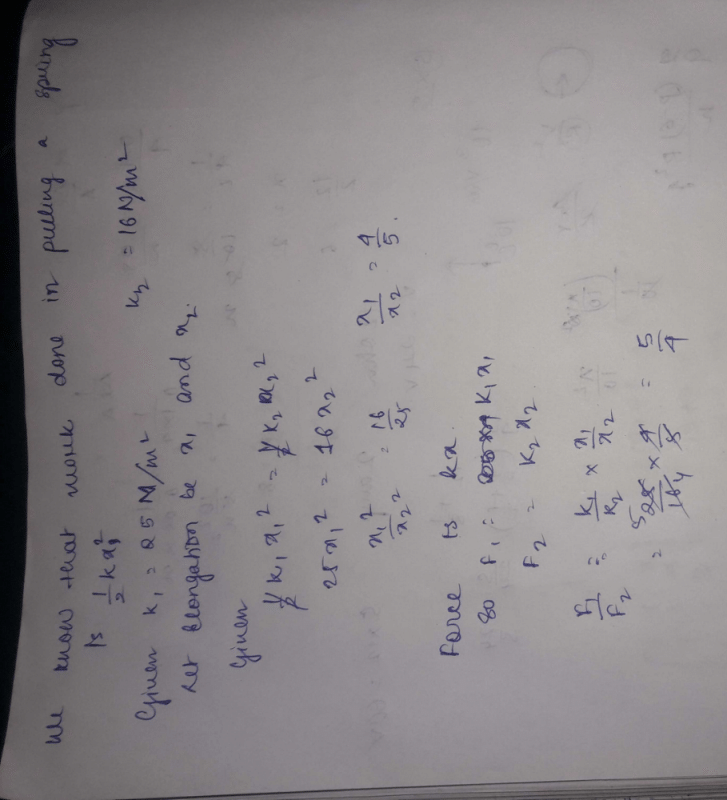 We know that work done in pulling a spring
is 1/2 kx²
Given k₁ = 25 N/m² k₂ = 16 N/m²
Let elongation be x₁ and x₂.
Given
1/2 k₁ x₁² = 1/2 k₂ x₂²
25x₁² = 16x₂²
x₁²/x₂² = 16/25 x₁/x₂ = 4/5.
Force is kx.
So F₁ = k₁x₁
F₂ = k₂x₂.
F₁/F₂ = k₁/k₂ × x₁/x₂
= 25/16 × 4/5 = 5/4